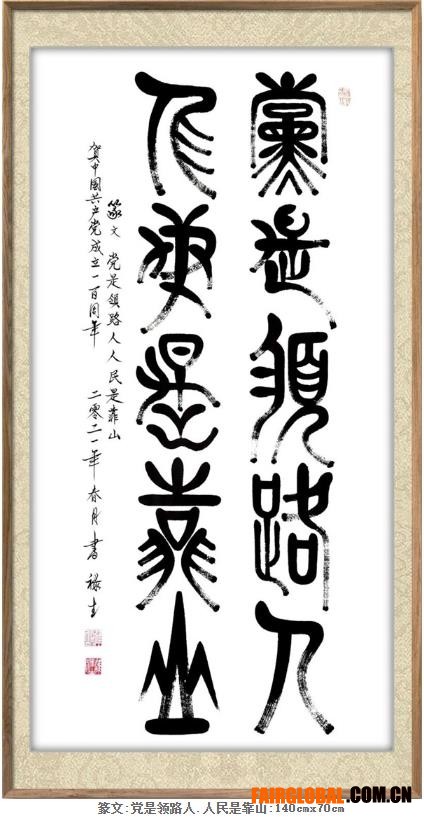 黨是領路人
人民是靠山
篆文 党是領路人人民是靠山
賀中國共产党成立一百周年 二零二一年春月書
FAIRGLOBAL.COM.CN
篆文:党是领路人.人民是靠山:140cmx70cm